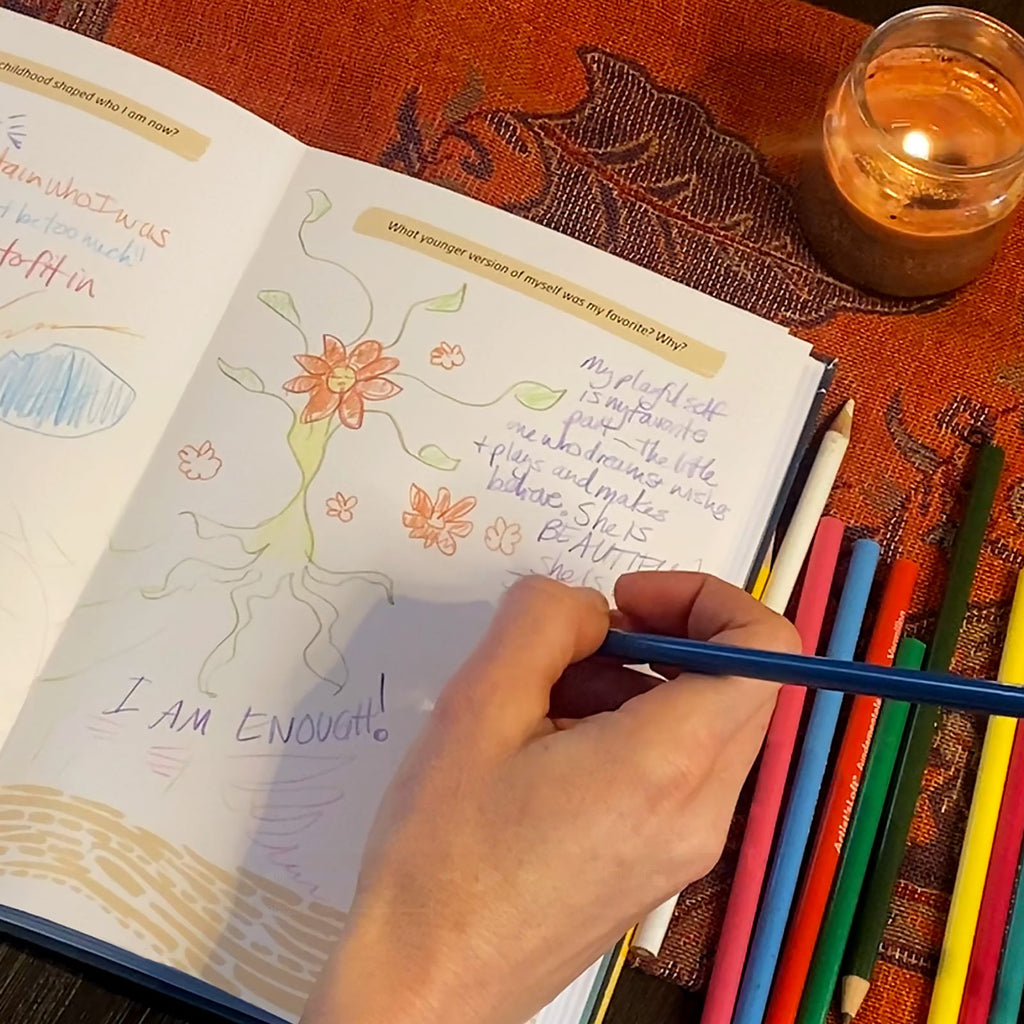 childhood shaped who I am now?
who I was
be too much!!
to fit in
What younger version of myself was my favorite? Why?
My playful self
is my favorite
part — the little
one who dreams + wishes
+ plays and makes
believe. She IS
BEAUTIFUL!
She is
I AM ENOUGH!
Artist's Loft Fundamentals Vermilion